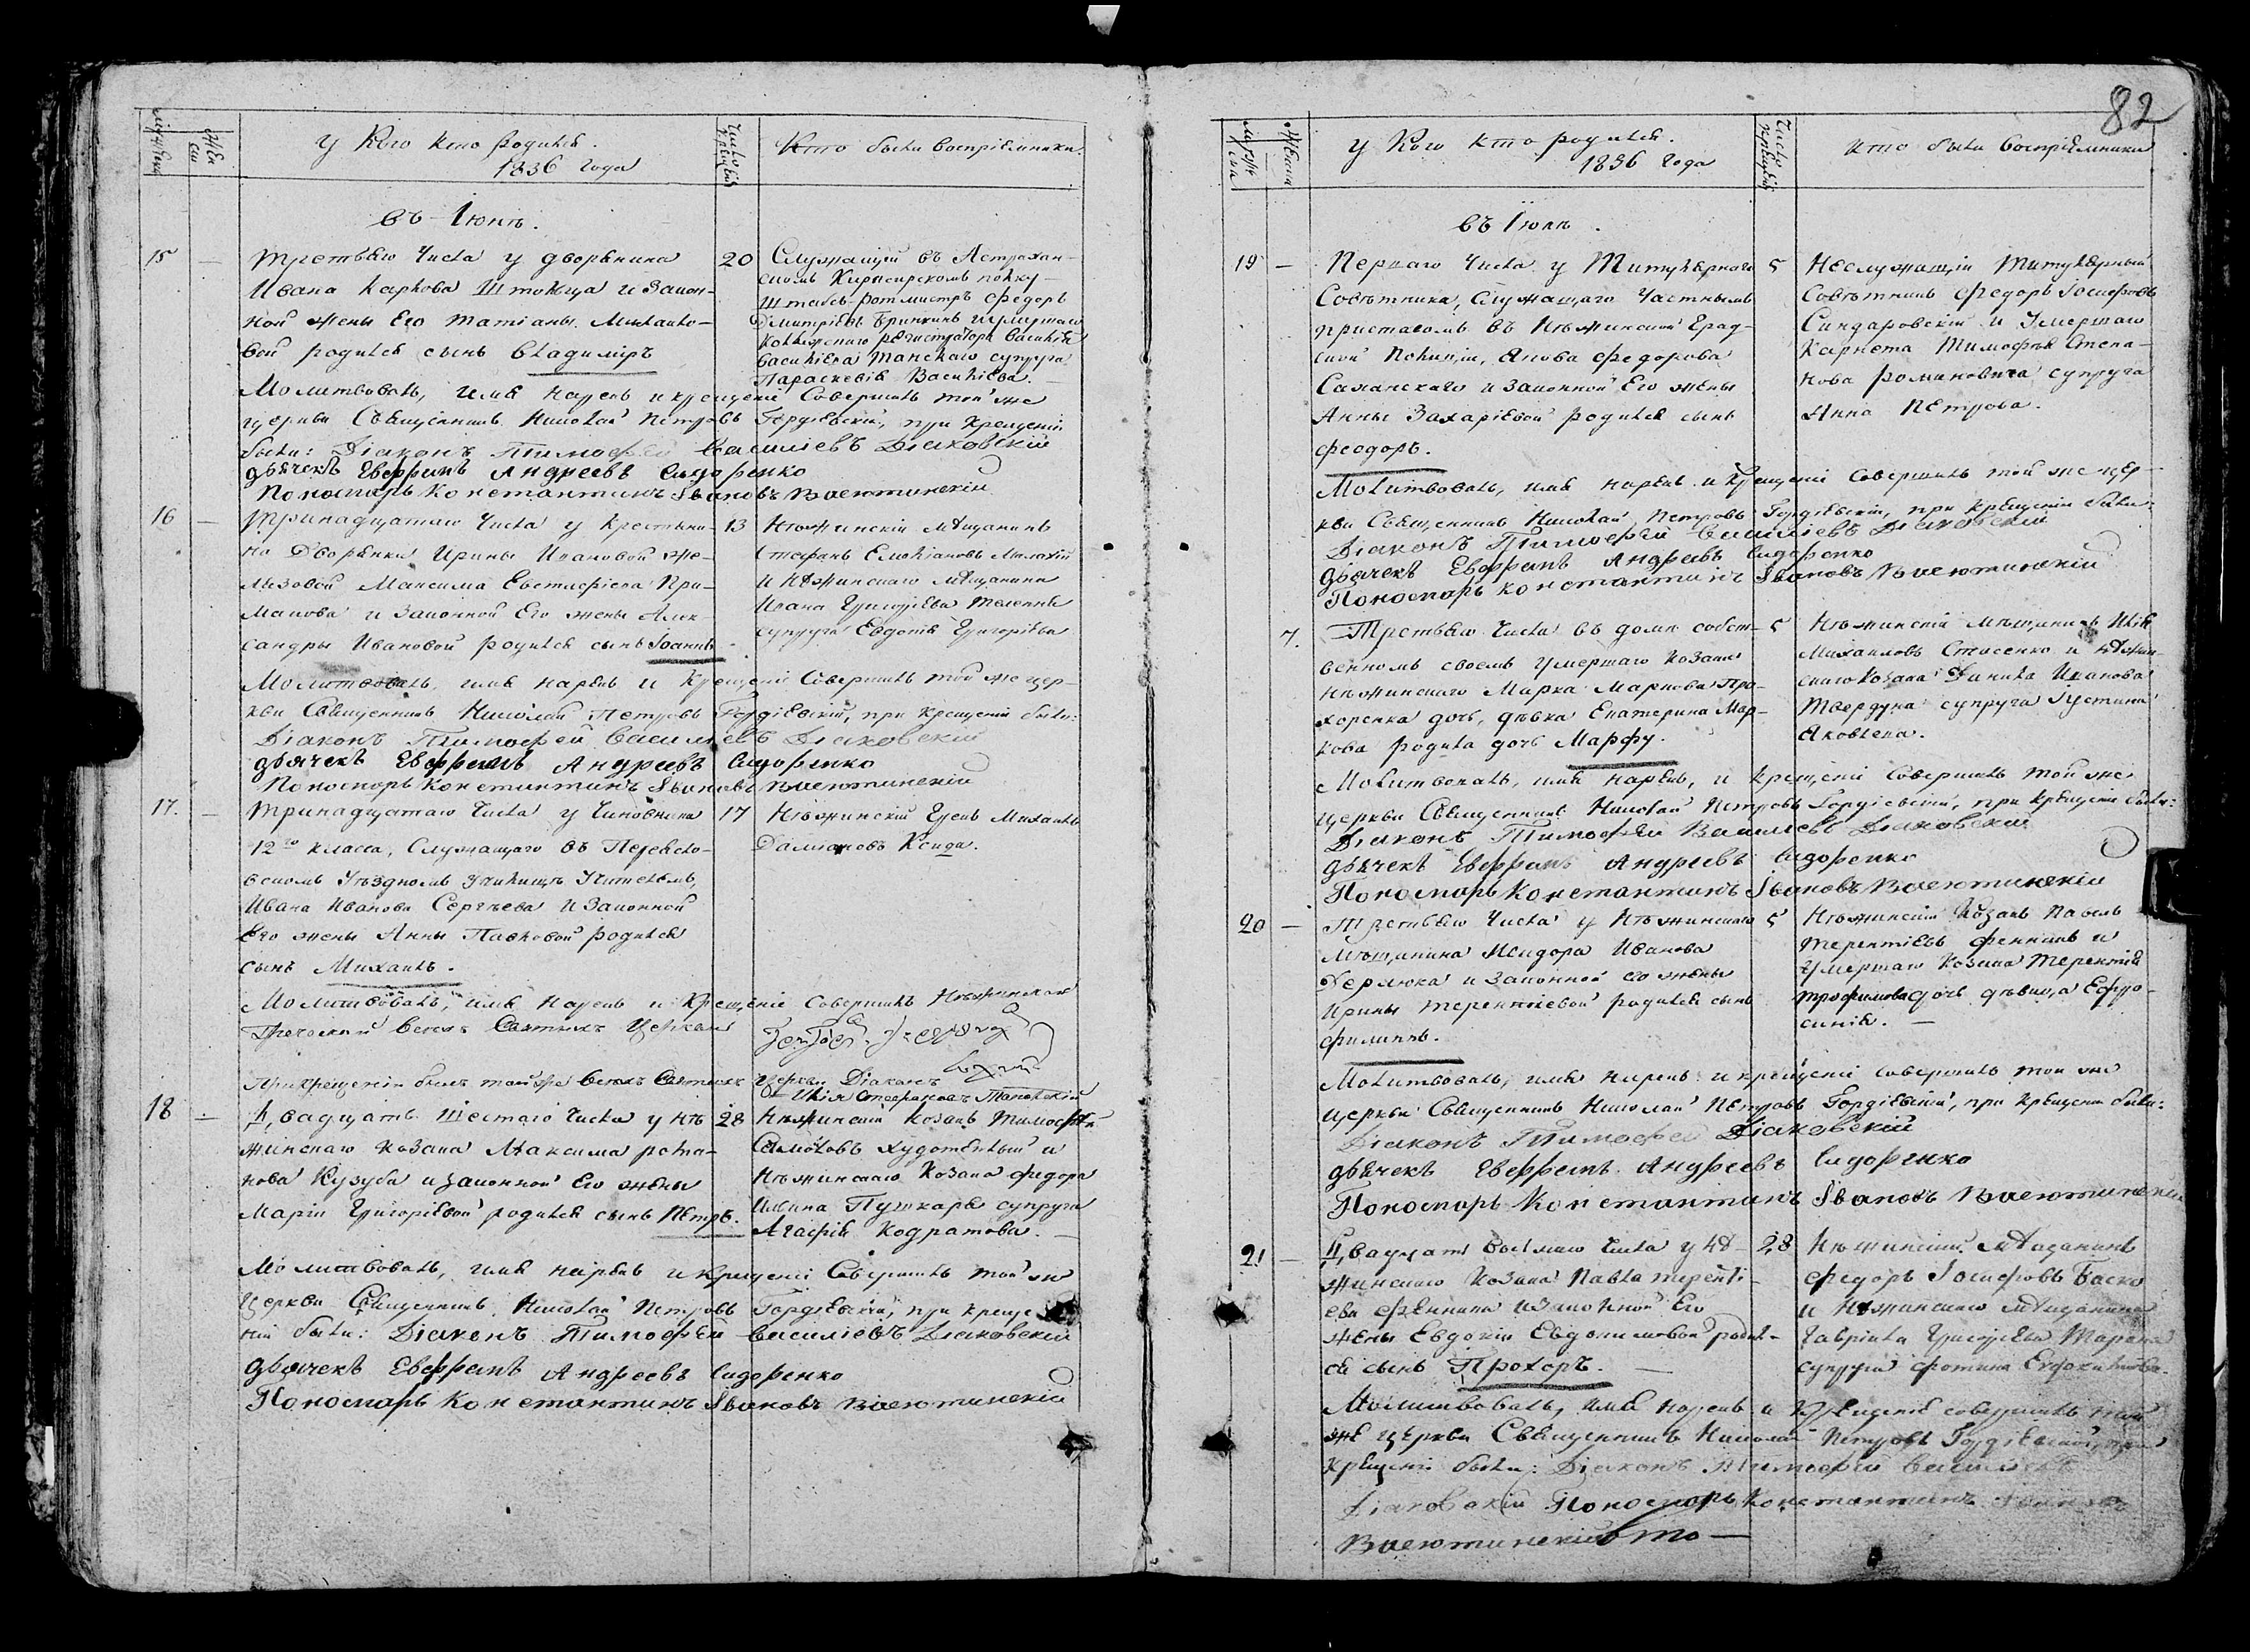 82
Мужеска
Женска
У Кого кто родился.
1836 года
Число крещенія
Кто были воспріемники.
въ Іюнѣ.
15 — Третьяго числа у дворянина
Ивана Карпова и закон-
ной жены его Татіаны Михайло-
вой родился сынъ Владиміръ
20
Служащій въ Астрахан-
скомъ Кирасирскомъ полку
Штабсъ-ротмистръ Федоръ
Дмитріевъ и умершаго
Коллежскаго регистратора Василія
Васильева Танскаго супруга
Параскевія Васильева.
Молитвовалъ, имя нарекъ и крещеніе совершилъ той же
церкви Священникъ Николай Петровъ Гордіевскій, при крещеніи
были: Діаконъ Тимофей Василіевъ Діаковскій
дьячекъ Евфремъ Андреевъ Сидоренко
Пономарь Константинъ Івановъ
16 — Тринадцатаго числа у крестьяни-
на Дворянки Ирины Ивановой
Максима Евстафіева При-
макова и законной его жены Алек-
сандры Ивановой родился сынъ Іоаннъ
13
Нѣжинскій мѣщанинъ
Стефанъ
и нѣжинскаго мѣщанина
Ивана Григоріева
супруга Евдокія Григоріева
Молитвовалъ, имя нарекъ и крещеніе совершилъ той же цер-
кви Священникъ Николай Петровъ Гордіевскій, при крещеніи были:
Діаконъ Тимофей Василіевъ Діаковскій
дьячекъ Евфремъ Андреевъ Сидоренко
Пономарь Константинъ Івановъ
17. — Тринадцатаго числа у чиновника
12го класса, служащаго въ
Уѣздномъ училищѣ учителемъ,
Ивана Иванова Сергѣева и законной
его жены Анны Павловой родился
сынъ Михаилъ.
17
Нѣжинскій Грекъ Михаилъ
Даміановъ
Молитвовалъ, имя нарекъ и крещеніе совершилъ Нѣжинской
Греческой Всѣхъ Святыхъ Церкви
При крещеніи былъ той же Всѣхъ Святыхъ церкви Діаконъ
Илія Стефановъ
18 — Двадцать шестаго числа у нѣ-
жинскаго козака Максима Рома-
нова Кузуба и законной его жены
Маріи Григоріевой родился сынъ Петръ.
28
Нѣжинскій козакъ Тимофей
Самойловъ и
нѣжинскаго козака Федора
Пушкаря супруга
Агафія Кодратова.
Молитвовалъ, имя нарекъ и крещеніе совершилъ той же
церкви Священникъ Николай Петровъ Гордіевскій, при креще-
ніи были: Діаконъ Тимофей Василіевъ Діаковскій
дьячекъ Евфремъ Андреевъ Сидоренко
Пономарь Константинъ Івановъ
Мужеска
Женска
У Кого кто родился.
1836 года
Число крещенія
Кто были воспріемники
въ Іюлѣ.
19 — Перваго числа у Титулярнаго
Совѣтника, служащаго Частнымъ
приставомъ въ Нѣжинской Град-
ской Полиціи, Якова Федорова
и законной его жены
Анны Захаріевой родился сынъ
Феодоръ.
5
Неслужащій Титулярный
Совѣтникъ Федоръ Іосифовъ
и умершаго
Корнета Тимофея Степа-
нова Романовича супруга
Анна Петрова.
Молитвовалъ, имя нарекъ и крещеніе совершилъ той же цер-
кви Священникъ Николай Петровъ Гордіевскій, при крещеніи были:
Діаконъ Тимофей Василіевъ Діаковскій
дьячекъ Евфремъ Андреевъ Сидоренко
Пономарь Константинъ Івановъ
7. Третьяго числа въ домѣ собст-
венномъ своемъ умершаго козака
нѣжинскаго Марка Маркова Про-
хоренка дочь, дѣвка Екатерина Мар-
кова родила дочь Марфу.
5
Нѣжинскій мѣщанинъ Илія
Михаиловъ и нѣжин-
скаго козака Данила Иванова
Твердуна супруга Іустина
Яковлева.
Молитвовалъ, имя нарекъ, и крещеніе совершилъ той же
церкви Священникъ Николай Петровъ Гордіевскій, при крещеніи были:
Діаконъ Тимофей Василіевъ Діаковскій
дьячекъ Евфремъ Андреевъ Сидоренко
Пономарь Константинъ Івановъ
20 — Третьяго числа у Нѣжинскаго
мѣщанина Исидора Иванова
и законной его жены
Ирины Терентіевой родился сынъ
Филиппъ.
5
Нѣжинскій козакъ Павелъ
Терентіевъ и
умершаго козака Терентія
Трофимова дочь дѣвица Ефро-
синія. —
Молитвовалъ, имя нарекъ и крещеніе совершилъ той же
церкви Священникъ Николай Петровъ Гордіевскій, при крещеніи были:
Діаконъ Тимофей Діаковскій
дьячекъ Евфремъ Андреевъ Сидоренко
Пономарь Константинъ Івановъ
21 — Двадцать восьмаго числа у нѣ-
жинскаго козака Павла Теренті-
ева и законной его
жены Евдокіи Евдокимовой родил-
ся сынъ Прохоръ. —
28
Нѣжинскій мѣщанинъ
Федоръ Іосифовъ
и нѣжинскаго мѣщанина
Гавріила Григоріева
супруга Фотина Евдокимова.
Молитвовалъ, имя нарекъ и крещеніе совершилъ той
же церкви Священникъ Николай Петровъ Гордіевскій, при
крещеніи были: Діаконъ Тимофей Василіевъ
Діаковскій Пономарь Константинъ Івановъ